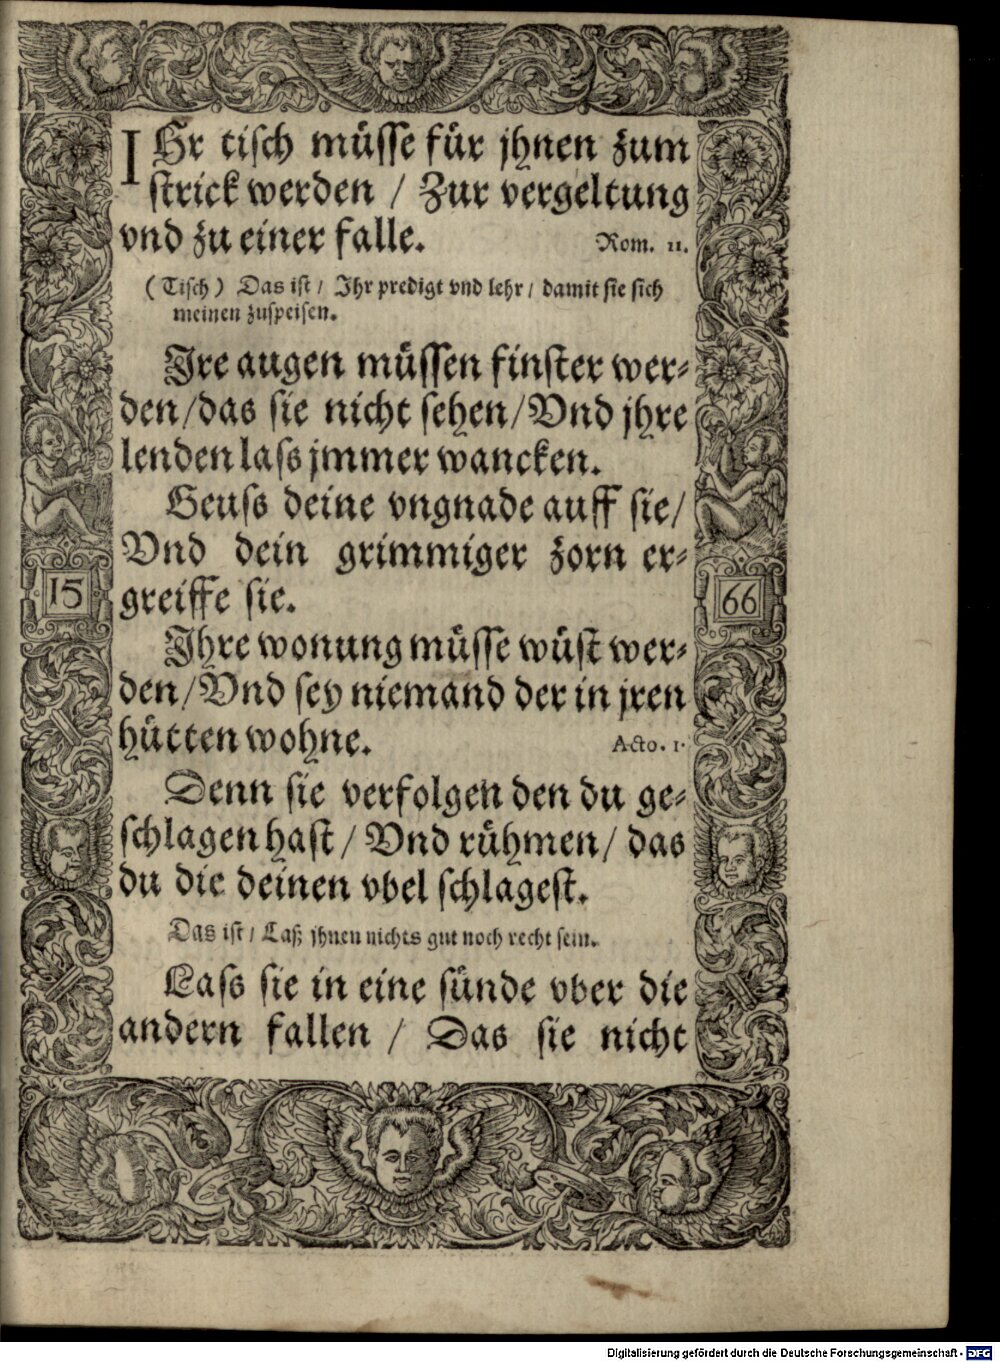 IHr tisch müsse für jhnen zum
strick werden / Zur vergeltung
vnd zu einer falle. Rom. 11.
(Tisch) Das ist / Ihr predigt vnd lehr / damit sie sich
meinen zuspeisen.
Ire augen müssen finster wer⸗
den / das sie nicht sehen / Vnd jhre
lenden lass jmmer wancken.
Geuss deine vngnade auff sie /
Vnd dein grimmiger zorn er⸗
greiffe sie.
15 66
Ihre wonung müsse wüst wer⸗
den / Vnd sey niemand der in jren
hütten wohne. Acto. 1.
Denn sie verfolgen den du ge⸗
schlagen hast / Vnd rühmen / das
du die deinen vbel schlagest.
Das ist / Laß jhnen nichts gut noch recht sein.
Lass sie in eine sünde vber die
andern fallen / Das sie nicht
Digitalisierung gefördert durch die Deutsche Forschungsgemeinschaft - DFG